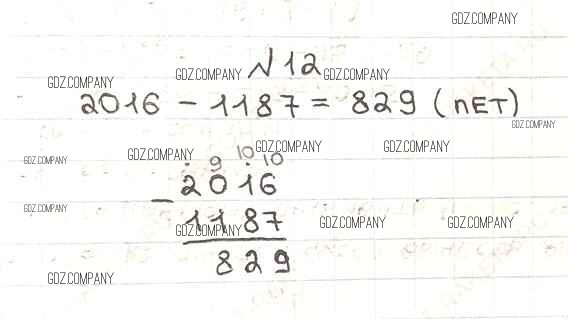 GDZ.COMPANY
N 12
GDZ.COMPANY GDZ.COMPANY GDZ.COMPANY
2016 - 1187 = 829 (лет)
GDZ.COMPANY
GDZ.COMPANY GDZ.COMPANY GDZ.COMPANY GDZ.COMPANY
. 9 10 . 10
- 2016
GDZ.COMPANY
1187
GDZ.COMPANY GDZ.COMPANY GDZ.COMPANY
829
GDZ.COMPANY